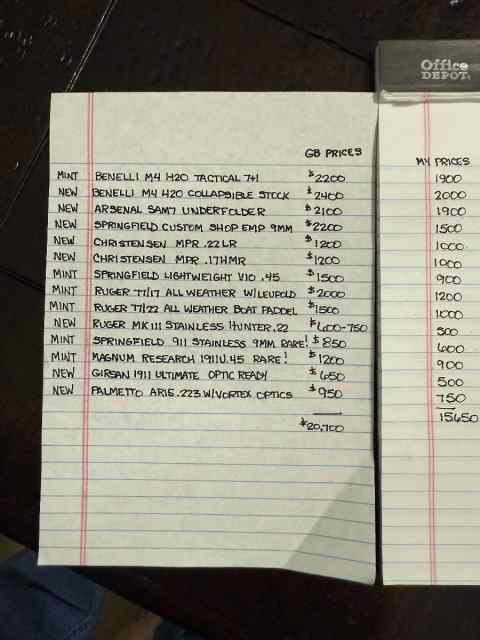 Office
DEPOT
GB PRICES
MINT BENELLI M4 H20 TACTICAL 7+1 $2200
NEW BENELLI M4 H20 COLLAPSIBLE STOCK $2400
NEW ARSENAL SAM7 UNDERFOLDER $2100
NEW SPRINGFIELD CUSTOM SHOP EMP 9MM $2200
NEW CHRISTENSEN MPR .22LR $1200
NEW CHRISTENSEN MPR .17HMR $1200
MINT SPRINGFIELD LIGHTWEIGHT V10 .45 $1500
MINT RUGER 77/17 ALL WEATHER W/LEUPOLD $2000
MINT RUGER 77/22 ALL WEATHER BOAT PADDEL $1500
NEW RUGER MK III STAINLESS HUNTER .22 $600-750
MINT SPRINGFIELD 911 STAINLESS 9MM RARE! $850
MINT MAGNUM RESEARCH 1911U .45 RARE! $1200
NEW GIRSAN 1911 ULTIMATE OPTIC READY $650
NEW PALMETTO AR15 .223 W/VORTEX OPTICS $950
$20,700
MY PRICES
1900
2000
1900
1500
1000
1000
900
1200
1000
500
600
900
500
750
15650